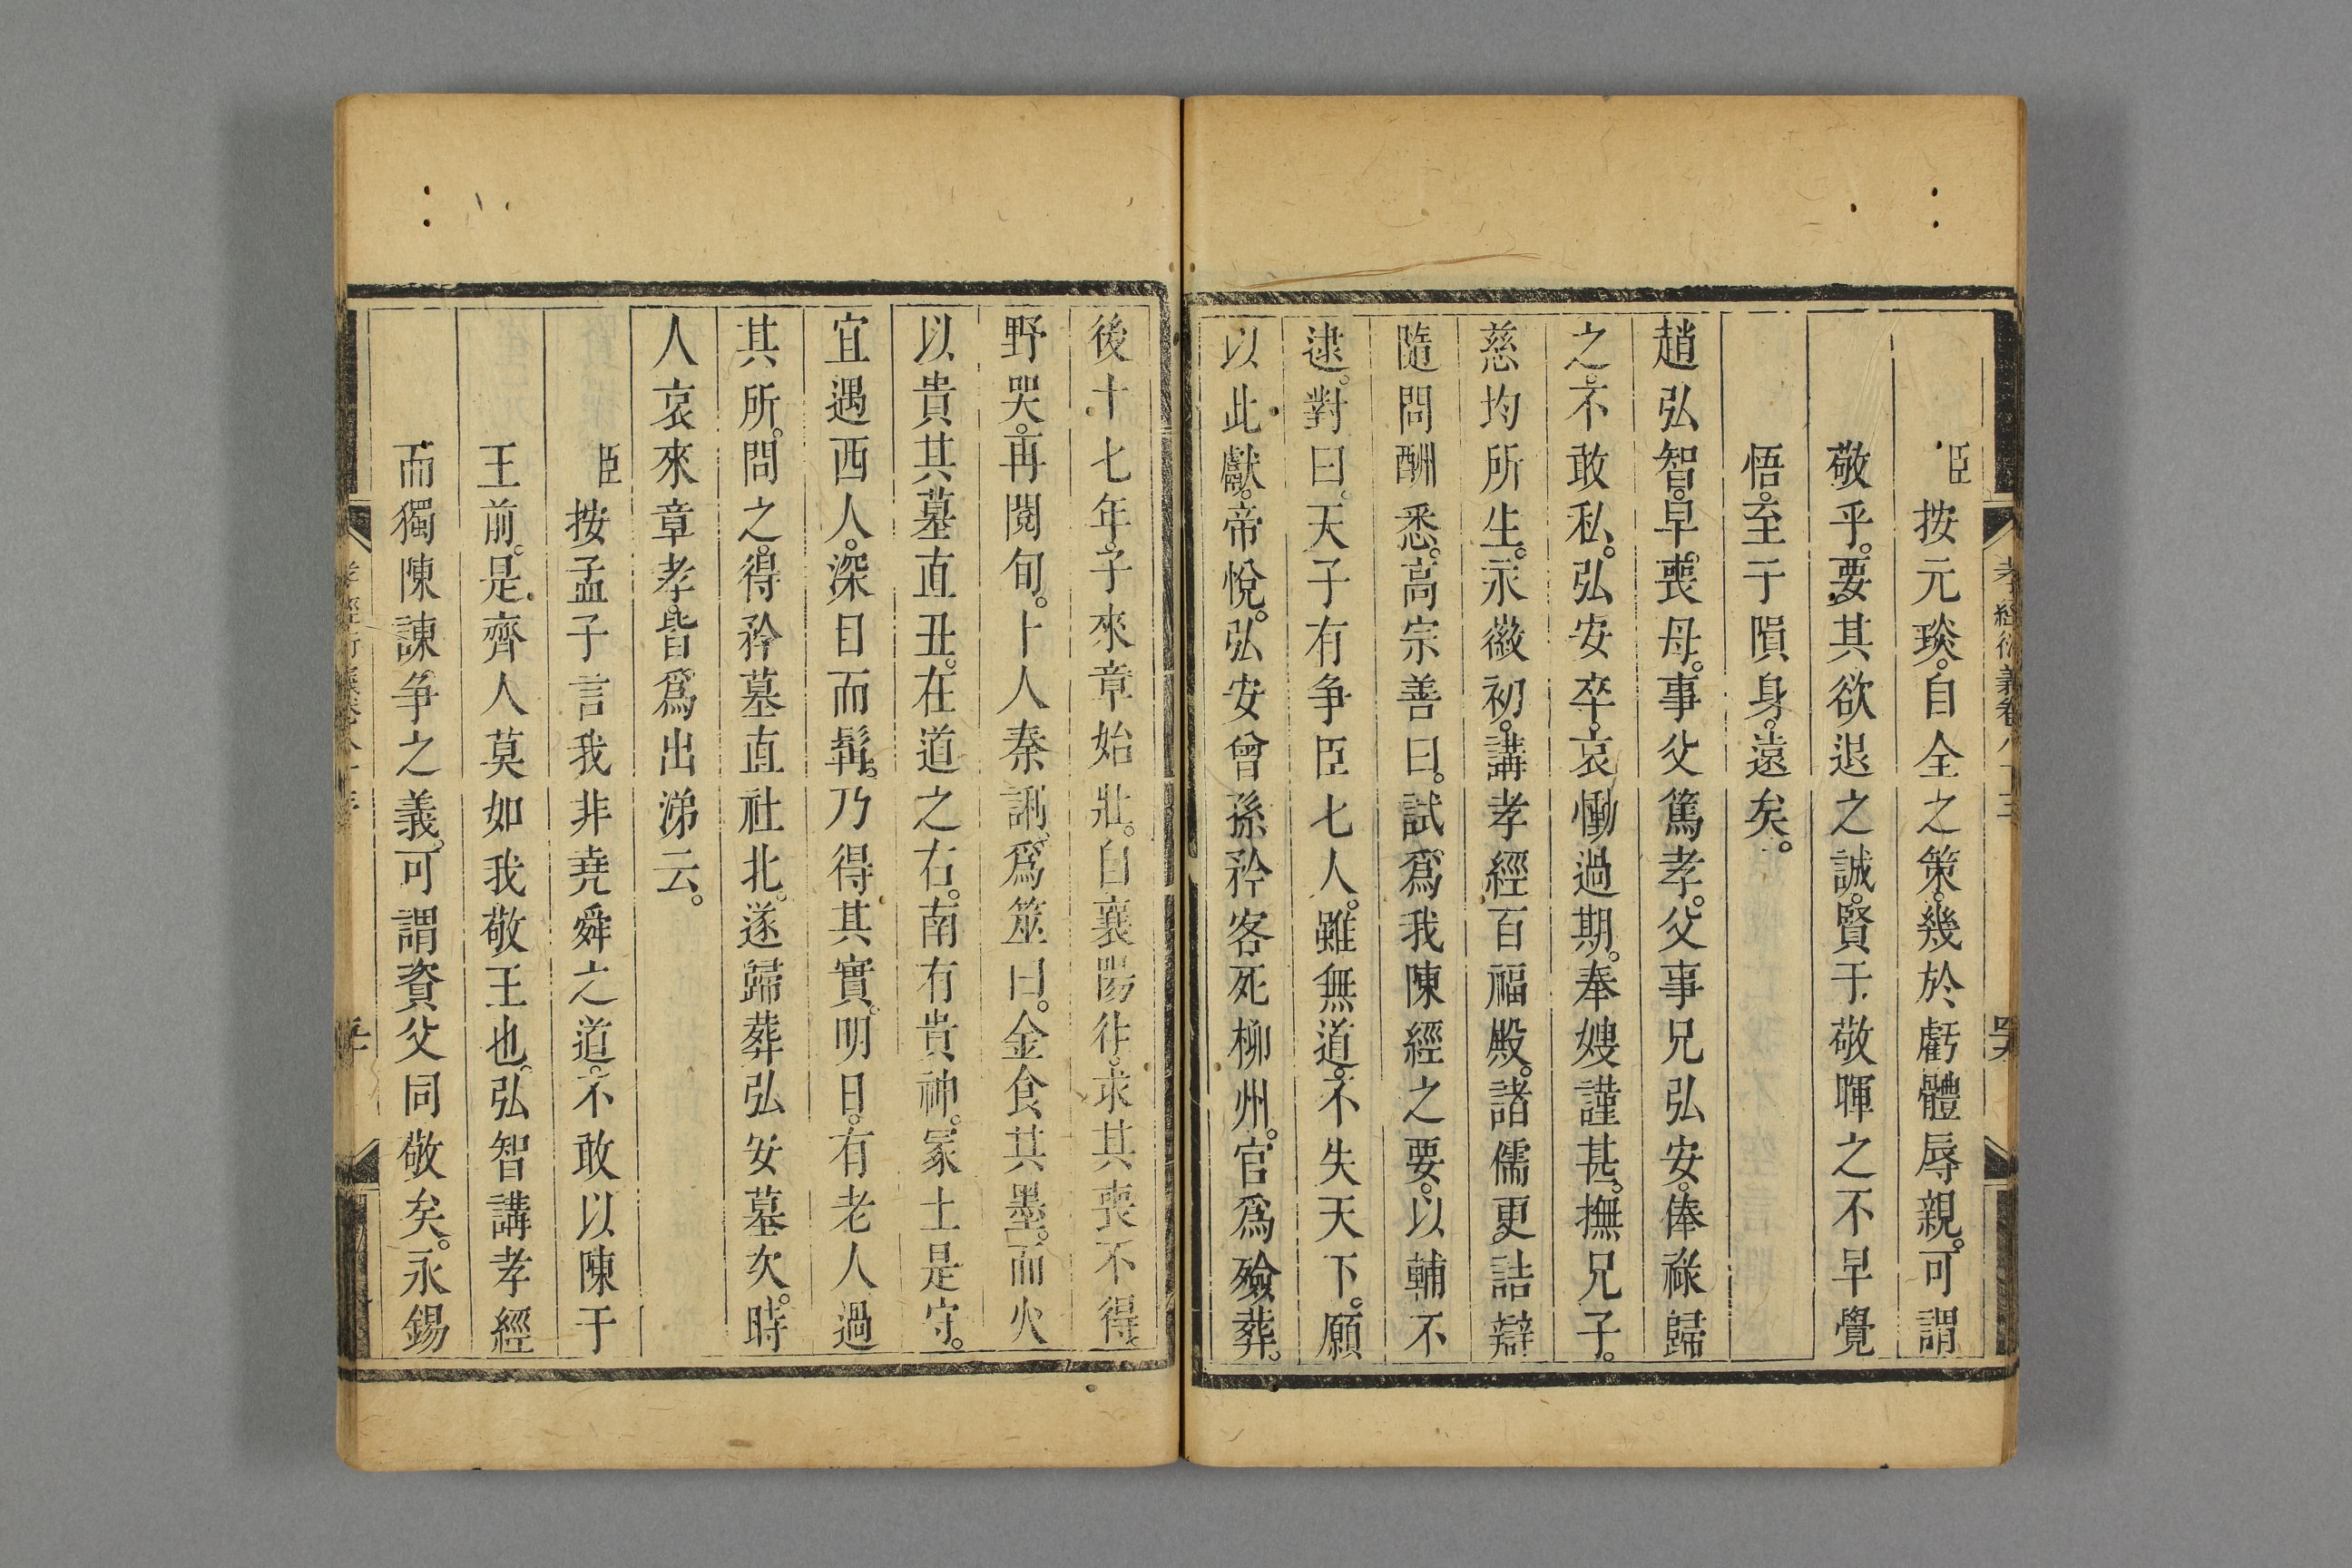 臣按元琰。自全之策。幾於虧體辱親。可謂
敬乎。要其欲退之誠。賢于敬暉之不早覺
悟。至于隕身。遠矣。
趙弘智。早喪母。事父篤孝。父事兄弘安。俸祿歸
之。不敢私。弘安卒。哀慟過期。奉嫂謹甚。撫兄子。
慈均所生。永徽初。講孝經百福殿。諸儒更詰辯
隨問酬悉。高宗善曰。試爲我陳經之要。以輔不
逮。對曰。天子有爭臣七人。雖無道。不失天下。願
以此獻。帝悅。弘安曾孫矜客死柳州。官爲殮葬。
後十七年。子來章始壯。自襄陽往。求其喪不得。
野哭。再閱旬。卜人秦誗。爲筮曰。金食其墨。而火
以貴其墓直丑。在道之右。南有貴神。冢土是守。
宜遇西人。深目而髯。乃得其實。明日。有老人過
其所。問之。得矜墓直社北。遂歸葬弘安墓次。時
人哀來章孝。皆爲出涕云。
臣按孟子言我非堯舜之道。不敢以陳于
王前。是齊人莫如我敬王也。弘智講孝經
而獨陳諫爭之義。可謂資父同敬矣。永錫
孝經衍義卷八十三